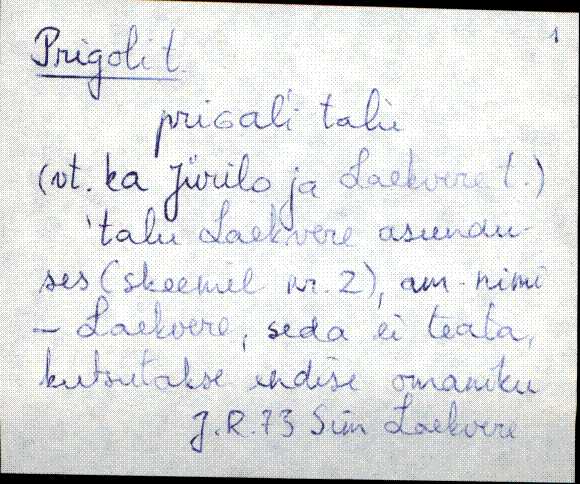 1
Prigoli t.
prigali talu
(vt. ka Jürilo ja Laekvere t.)
'talu Laekvere asundu-
ses (skeemil nr. 2), am-nimi
– Laekvere, seda ei teata,
kutsutakse endise omaniku
J.R. 73 Sim Laekvere